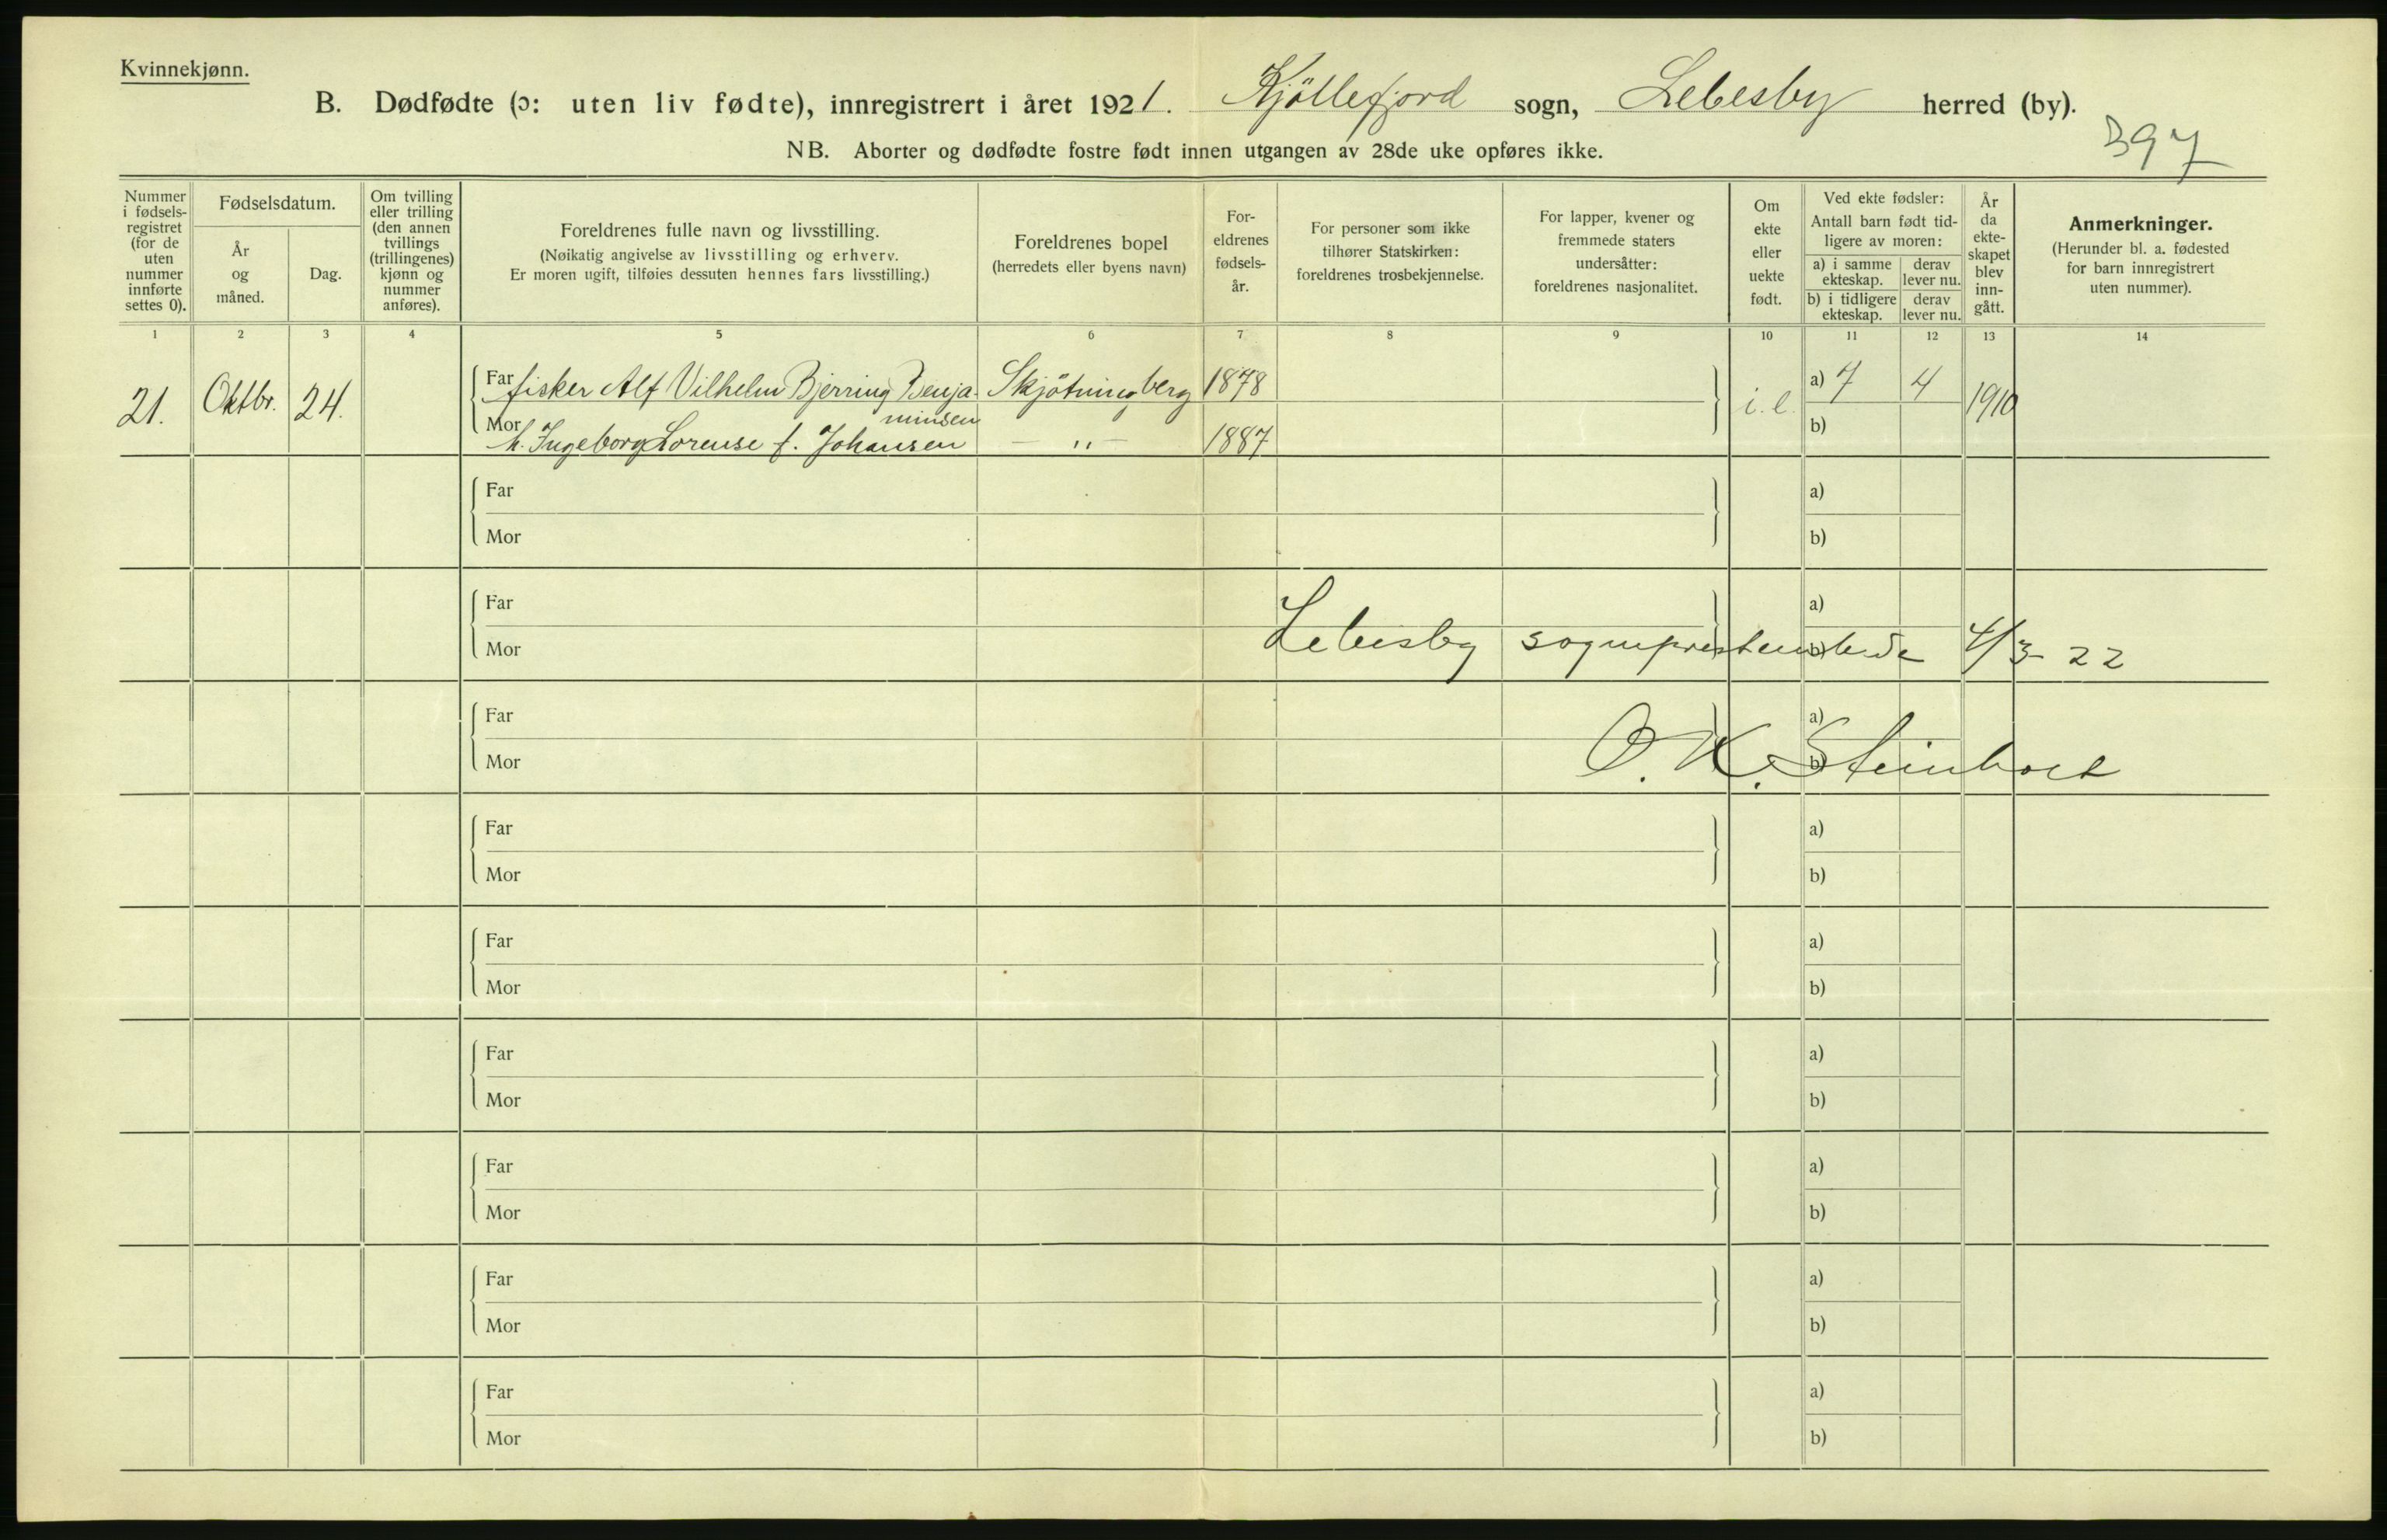 Kvinnekjønn.
B. Dødfødte (ɔ: uten liv fødte), innregistrert i året 1921. Kjöllefjord sogn, Lebesby herred (by).
NB. Aborter og dødfødte fostre født innen utgangen av 28de uke opføres ikke.
397
Nummer i fødsels-registret (for de uten nummer innførte settes 0).
Fødselsdatum.
År og måned.
Dag.
Om tvilling eller trilling (den annen tvillings (trillingenes) kjønn og nummer anføres).
Foreldrenes fulle navn og livsstilling.
(Nøikatig angivelse av livsstilling og erhverv.
Er moren ugift, tilføies dessuten hennes fars livsstilling.)
Foreldrenes bopel
(herredets eller byens navn)
For-eldrenes fødsels-år.
For personer som ikke tilhører Statskirken: foreldrenes trosbekjennelse.
For lapper, kvener og fremmede staters undersåtter: foreldrenes nasjonalitet.
Om ekte eller uekte født.
Ved ekte fødsler:
Antall barn født tid-ligere av moren:
a) i samme ekteskap.
derav lever nu.
b) i tidligere ekteskap.
derav lever nu.
År da ekte-skapet blev inn-gått.
Anmerkninger.
(Herunder bl. a. fødested for barn innregistrert uten nummer).
1 2 3 4 5 6 7 8 9 10 11 12 13 14
21. Oktbr. 24.
Far fisker Alf Vilhelm Bjerring Benja- Skjötningberg 1878
minsen
Mor h. Ingeborg Lorense f. Johansen — " — 1887
i. e. a) 7 4 1910
b)
Far a)
Mor b)
Far a)
Lebesby sogneprestembede 4/3 22
Mor b)
Far a)
O. K. Steinholt
Mor b)
Far a)
Mor b)
Far a)
Mor b)
Far a)
Mor b)
Far a)
Mor b)
Far a)
Mor b)
Far a)
Mor b)